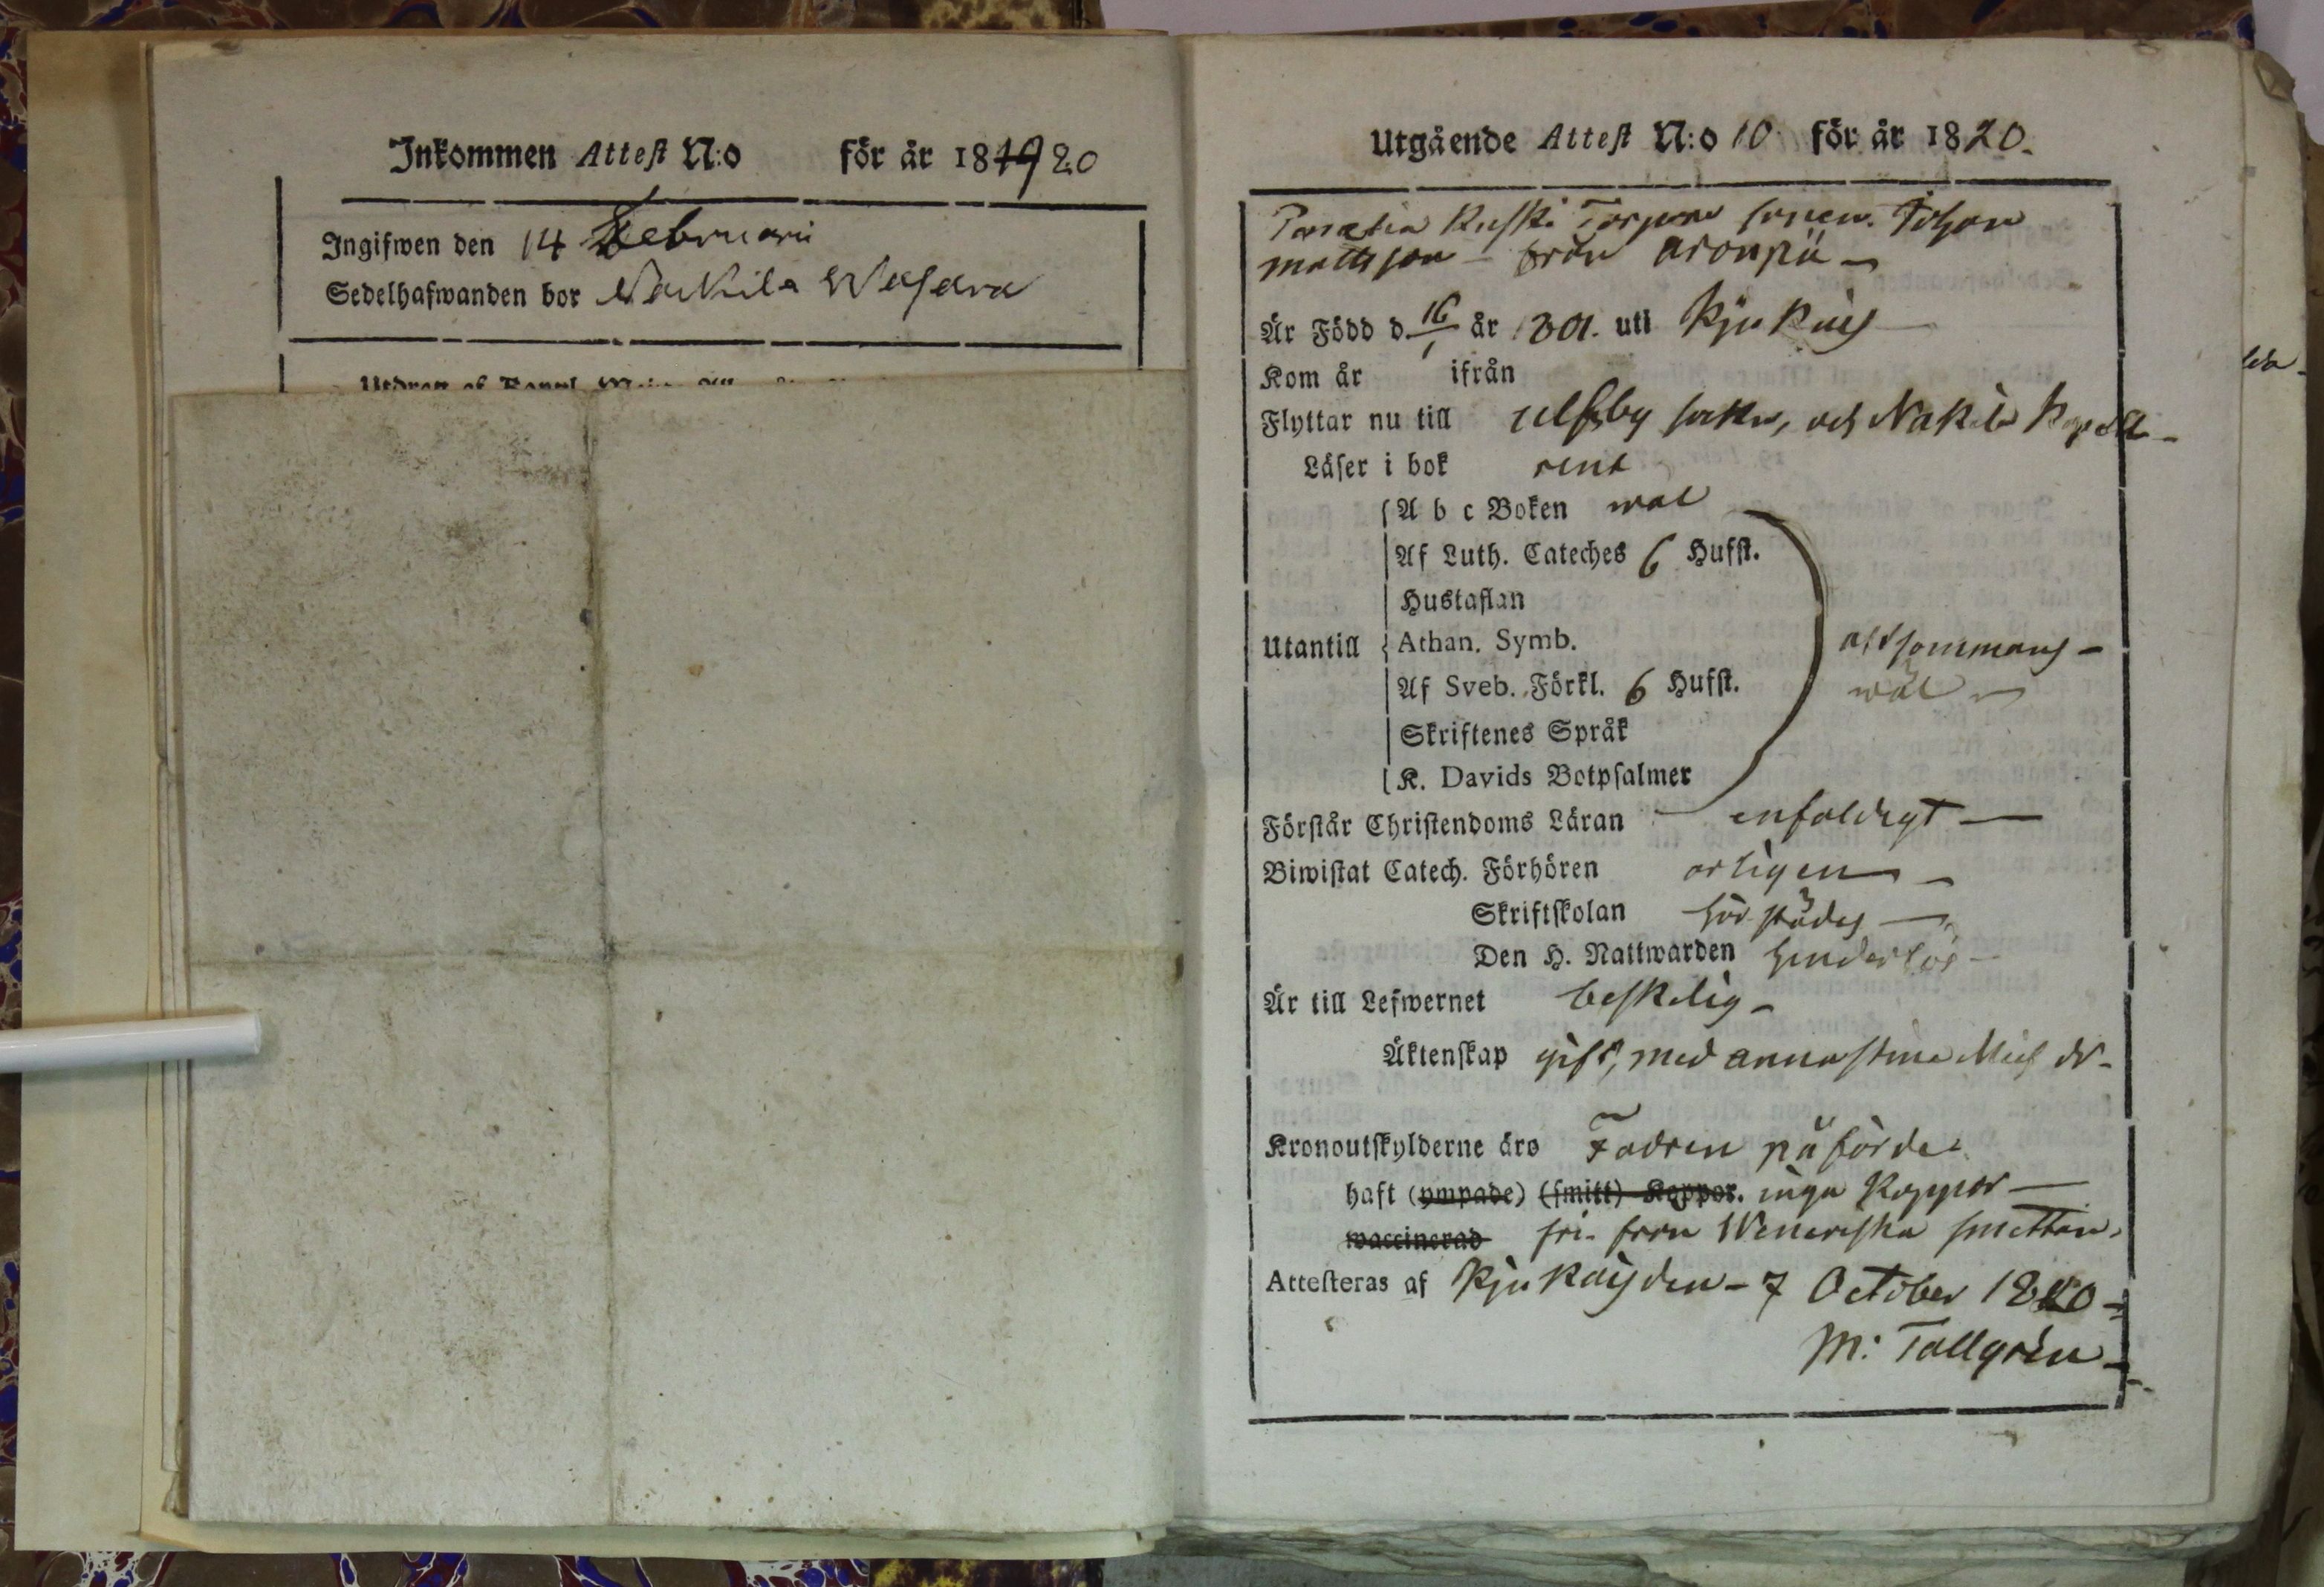 Inkommen Attest N:o för år 181920
Ingifwen den 14 Februarii
Sedelhafwanden bor Nackila
Utgående Attest N:o 10 för år 1820.
Torpare sonen Johan
Mattsson från Aronpä
Är Född d. 16/1 år 1801. uti Kjukais
Kom år ifrån
Flyttar nu till Ulfsby sokn, och Nakila Kapell
Läser i bok rent
A b c Boken wäl
Af Luth. Cateches 6 Hufst.
Hustaflan
Utantill Athan. Symb. altsommans
Af Sveb. Förkl. 6 Hufst. wäl
Skriftenes Språk
K. Davids Botpsalmer
Förstår Christendoms Läran enfaldigt
Biwistat Catech. Förhören årligen
Skriftskolan härstädes
Den H. Nattwarden hinderlös
Är till Lefwernet beskelig
Äktenskap gift, med Anna Stina Mich dr
Kronoutskylderne äro Fadren påförde
haft (ympade) (smitt) Koppor. inga Koppor
waccinerad fri från Weneriska smittan.
Attesteras af Kjukais den 7 October 1820
M: Tallgrén